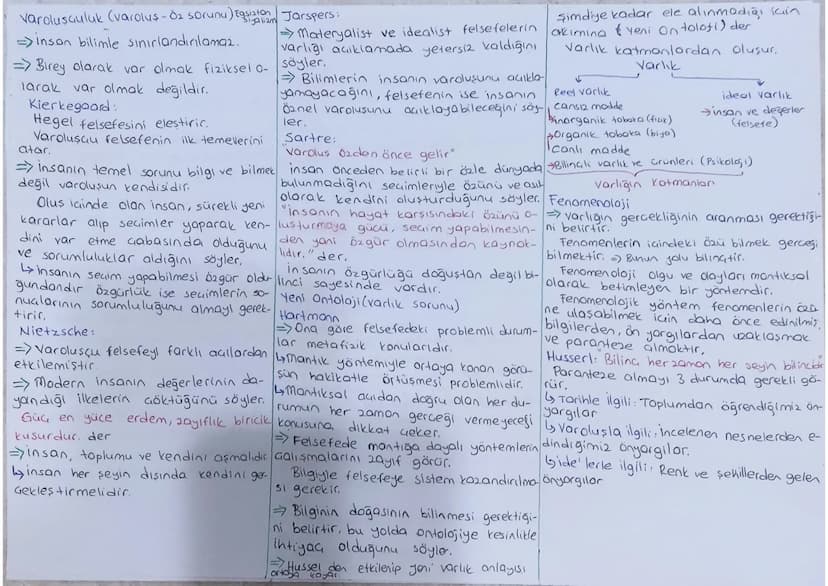 Varoluşculuk (varoluş-öz sorunu) Egzistan
siyalizm
⇒ insan bilimle sınırlandırılamaz.
⇒ Birey olarak var olmak fiziksel o-
larak var olmak değildir.
Kierkegaard:
Hegel felsefesini eleştirir.
Varoluşçu felsefenin ilk temellerini
atar.
⇒ insanın temel sorunu bilgi ve bilmek
değil varoluşun kendisidir.
Oluş içinde olan insan, sürekli yeni
kararlar alıp seçimler yaparak ken-
dini var etme çabasında olduğunu
ve sorumluluklar aldığını söyler.
↳ insanın seçim yapabilmesi özgür oldu-
ğundandır özgürlük ise seçimlerin so-
nuçlarının sorumluluğunu almayı gerek-
tirir.
Nietzsche:
⇒ Varoluşçu felsefeyi farklı açılardan
etkilemiştir.
⇒ Modern insanın değerlerinin da-
yandığı ilkelerin çöktüğünü söyler.
Güç en yüce erdem, zayıflık biricik
kusurdur. der
⇒ insan, toplumu ve kendini aşmalıdır
↳ insan her şeyin dışında kendini ger-
çekleştirmelidir.
Jarspers:
⇒ Materyalist ve idealist felsefelerin
varlığı açıklamada yetersiz kaldığını
söyler.
⇒ Bilimlerin insanın varoluşunu açıkla-
yamayacağını, felsefenin ise insanın
öznel varoluşunu açıklayabileceğini söy-
ler.
Sartre:
"Varoluş özden önce gelir"
insan önceden belirli bir özle dünyada
bulunmadığını seçimleriyle özünü ve asıl
olarak kendini oluşturduğunu söyler.
"insanın hayat karşısındaki özünü o-
luşturmaya gücü, seçim yapabilmesin-
den yani özgür olmasından kaynak-
lıdır." der.
insanın özgürlüğü doğuştan değil bi-
linci sayesinde vardır.
Yeni Ontoloji (varlık sorunu)
Hartmann
⇒ Ona göre felsefedeki problemli durum-
lar metafizik konularıdır.
↳ Mantık yöntemiyle ortaya konan görü-
şün hakikatle örtüşmesi problemlidir.
↳ Mantıksal açıdan doğru olan her du-
rumun her zaman gerçeği vermeyeceği
konusuna, dikkat çeker.
⇒ Felsefede mantığa dayalı yöntemlerin
çalışmalarını zayıf görür.
Bilgiyle felsefeye sistem kazandırılma-
sı gerekir.
⇒ Bilginin doğasının bilinmesi gerektiği-
ni belirtir, bu yolda ontolojiye kesinlikle
ihtiyaç olduğunu söyler.
⇒ Hussel den etkilenip yeni varlık anlayışı
ortaya koyar.
şimdiye kadar ele alınmadığı için
akımına (yeni ontoloji) der
Varlık katmanlardan oluşur.
Varlık
Reel varlık
ideal varlık
cansız madde
→ insan ve değerler
(felsefe)
→ inorganik tabaka (fizik)
→ organik tabaka (biyo)
canlı madde
→ Bilinçli varlık ve ürünleri (Psikoloji)
Varlığın katmanları
Fenomenoloji
⇒ varlığın gerçekliğinin aranması gerektiği-
ni belirtir.
Fenomenlerin içindeki özü bilmek gerçeği
bilmektir. ⇒ Bunun yolu bilinçtir.
Fenomenoloji olgu ve olayları mantıksal
olarak betimleyen bir yöntemdir.
Fenomenolojik yöntem fenomenlerin özü-
ne ulaşabilmek için daha önce edinilmiş
bilgilerden, ön yargılardan uzaklaşmak
ve paranteze almaktır.
Husserl: "Bilinç her zaman her şeyin bilincidir"
Paranteze almayı 3 durumda gerekli gö-
rür.
↳ Tarihle ilgili: Toplumdan öğrendiğimiz ön-
yargılar
↳ Varoluşla ilgili: İncelenen nesnelerden e-
dindiğimiz önyargılar.
↳ ide'lerle ilgili: Renk ve şekillerden gelen
önyargılar